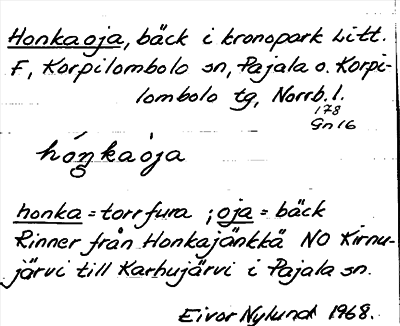 Honkaoja, bäck i kronopark Litt.
F, Korpilombolo sn, Pajala o. Korpi-
lombolo tg, Norrb. l.
178
Gn 16
hóŋkaòja
honka = torrfura ; oja = bäck
Rinner från Honkajänkkä NO Kirnu-
järvi till Karhujärvi i Pajala sn.
Eivor Nylund 1968.